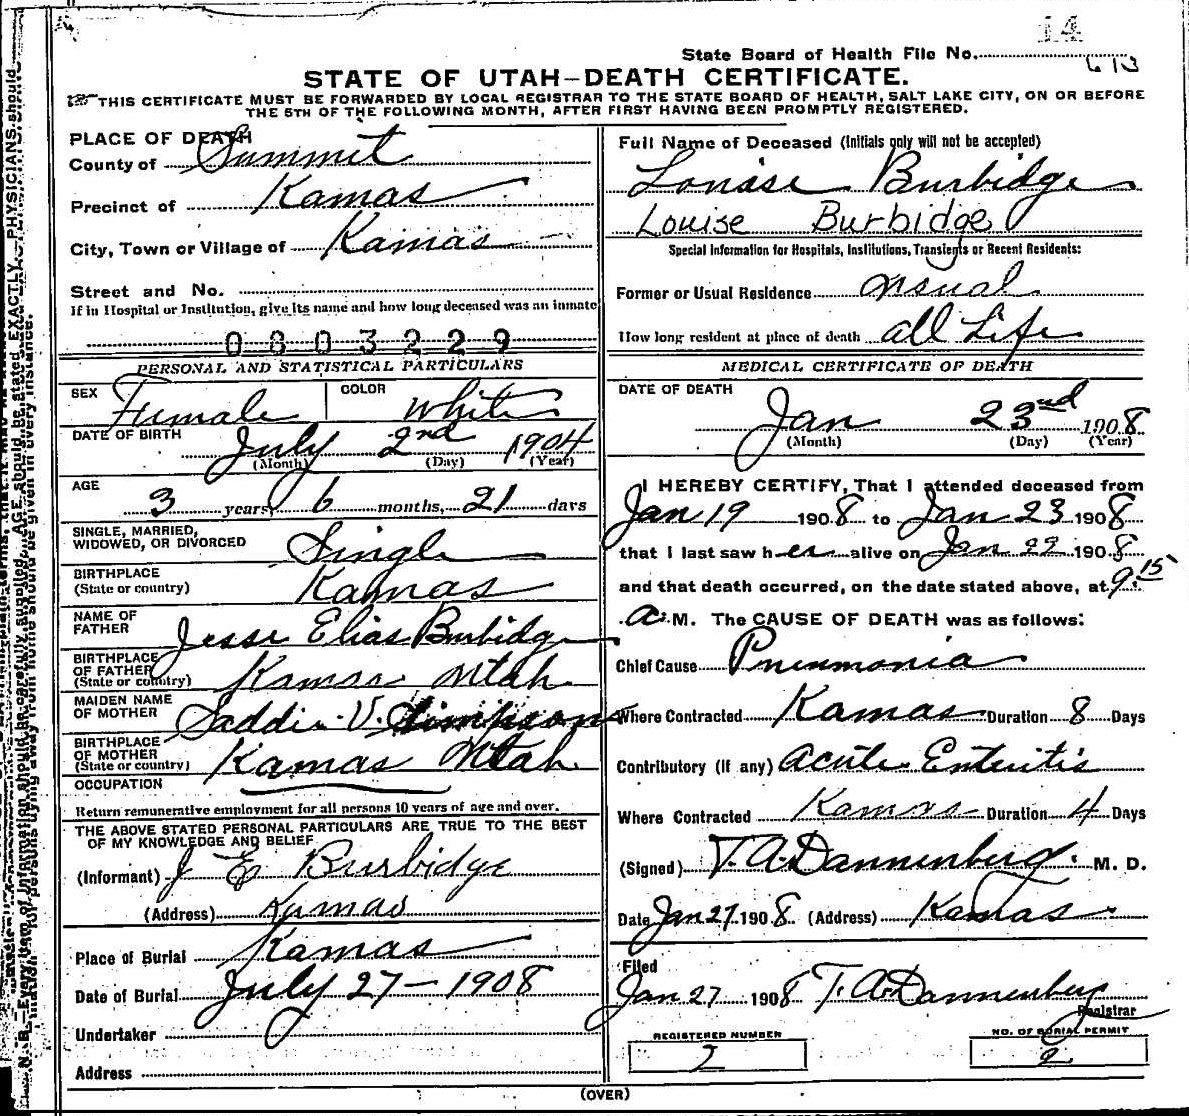 14
State Board of Health File No. 613
STATE OF UTAH—DEATH CERTIFICATE.
THIS CERTIFICATE MUST BE FORWARDED BY LOCAL REGISTRAR TO THE STATE BOARD OF HEALTH, SALT LAKE CITY, ON OR BEFORE
THE 5TH OF THE FOLLOWING MONTH, AFTER FIRST HAVING BEEN PROMPTLY REGISTERED.
PLACE OF DEATH
County of Summit
Precinct of Kamas
City, Town or Village of Kamas
Street and No.
If in Hospital or Institution, give its name and how long deceased was an inmate
0803229
PERSONAL AND STATISTICAL PARTICULARS
SEX Female COLOR White
DATE OF BIRTH July 2nd 1904
(Month) (Day) (Year)
AGE
3 years, 6 months, 21 days
SINGLE, MARRIED,
WIDOWED, OR DIVORCED Single
BIRTHPLACE
(State or country) Kamas
NAME OF
FATHER Jesse Elias Burbidge
BIRTHPLACE
OF FATHER
(State or country) Kamas Utah
MAIDEN NAME
OF MOTHER Saddie V. Simpson
BIRTHPLACE
OF MOTHER
(State or country) Kamas Utah
OCCUPATION
Return remunerative employment for all persons 10 years of age and over.
THE ABOVE STATED PERSONAL PARTICULARS ARE TRUE TO THE BEST
OF MY KNOWLEDGE AND BELIEF
(Informant) J E Burbidge
(Address) Kamas
Place of Burial Kamas
Date of Burial July 27 - 1908
Undertaker
Address
Full Name of Deceased (Initials only will not be accepted)
Louise Burbidge
Louise Burbidge
Special Information for Hospitals, Institutions, Transients or Recent Residents:
Former or Usual Residence usual
How long resident at place of death all Life
MEDICAL CERTIFICATE OF DEATH
DATE OF DEATH
Jan 23nd 1908
(Month) (Day) (Year)
I HEREBY CERTIFY, That I attended deceased from
Jan 19 1908 to Jan 23 1908
that I last saw her alive on Jan 22 1908
and that death occurred, on the date stated above, at 9:15
a M. The CAUSE OF DEATH was as follows:
Chief Cause Pneumonia
Where Contracted Kamas Duration 8 Days
Contributory (If any) Acute Enteritis
Where Contracted Kamas Duration 4 Days
(Signed) T. A. Dannenberg. M. D.
Date Jan 27 1908 (Address) Kamas
Filed
Jan 27 1908 T. A. Dannenberg
Registrar
REGISTERED NUMBER
2
NO. OF BURIAL PERMIT
2
(OVER)
N. B.—Every item of information should be carefully supplied. AGE should be stated EXACTLY. PHYSICIANS should